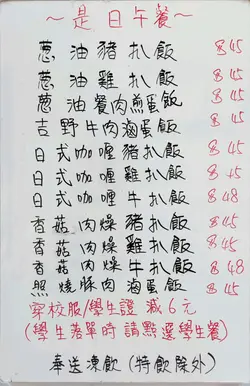 ～是日午餐～
蔥油豬扒飯 $45
蔥油雞扒飯 $45
蔥油餐肉煎蛋飯 $45
吉野牛肉滷蛋飯 $45
日式咖喱豬扒飯 $45
日式咖喱雞扒飯 $45
日式咖喱牛扒飯 $48
香菇肉燥豬扒飯 $45
香菇肉燥雞扒飯 $45
香菇肉燥牛扒飯 $48
照燒豚肉滷蛋飯 $45
穿校服/學生證 減6元
(學生落單時請點選學生餐)
奉送凍飲(特飲除外)